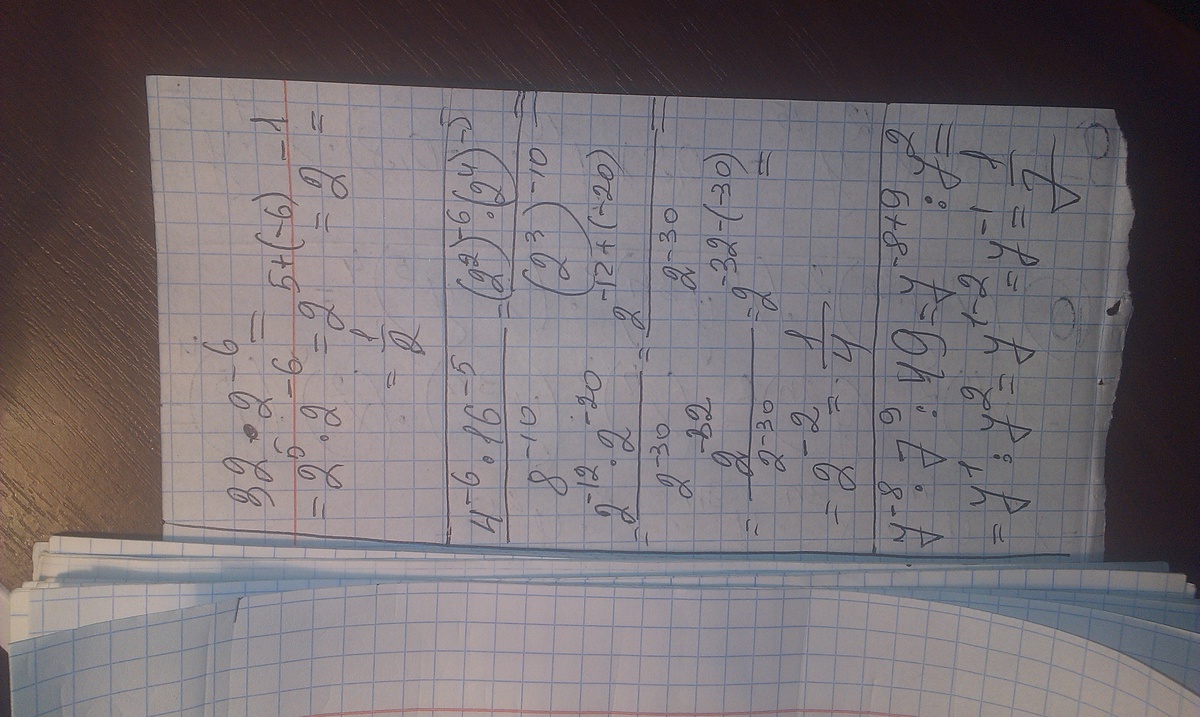 32 · 2⁻⁶ =
= 2⁵ · 2⁻⁶ = 2⁵⁺⁽⁻⁶⁾ = 2⁻¹ =
= 1/2
4⁻⁶ · 16⁻⁵ / 8⁻¹⁰ = (2²)⁻⁶ · (2⁴)⁻⁵ / (2³)⁻¹⁰ =
= 2⁻¹² · 2⁻²⁰ / 2⁻³⁰ = 2⁻¹²⁺⁽⁻²⁰⁾ / 2⁻³⁰ =
= 2⁻³² / 2⁻³⁰ = 2⁻³²⁻⁽⁻³⁰⁾ =
= 2⁻² = 1/4
7⁻⁸ · 7⁹ : 49 = 7⁻⁸⁺⁹ : 7² =
= 7¹ : 7² = 7¹⁻² = 7⁻¹ = 1/7